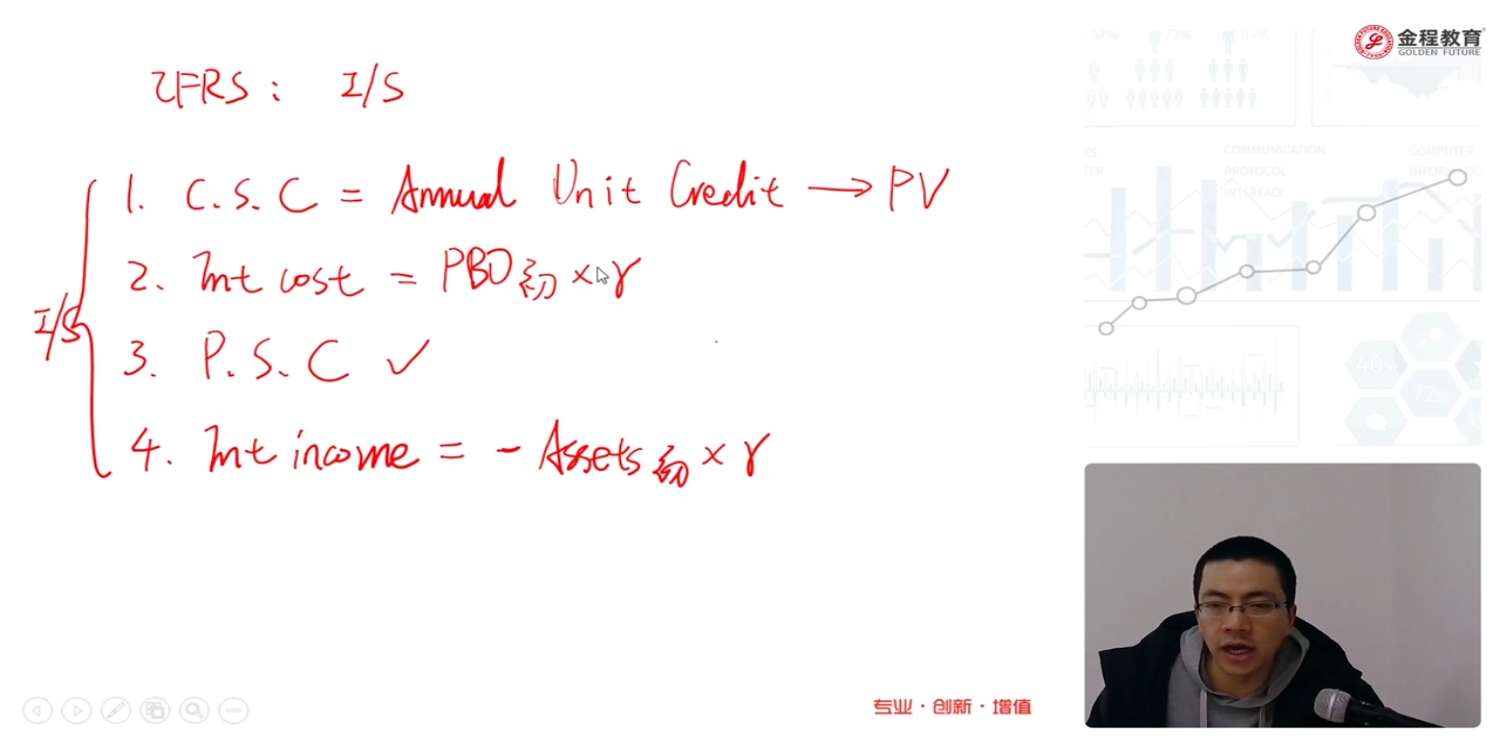 金程教育
GOLDEN FUTURE
IFRS : I/S
1. C.S.C = Annual Unit Credit → PV
2. Int cost = PBO初 × r
I/S
3. P.S.C ✓
4. Int income = - Assets初 × r
COMMUNICATION
PROTOCOL
INTERFACE
COMPUTER
专业·创新·增值